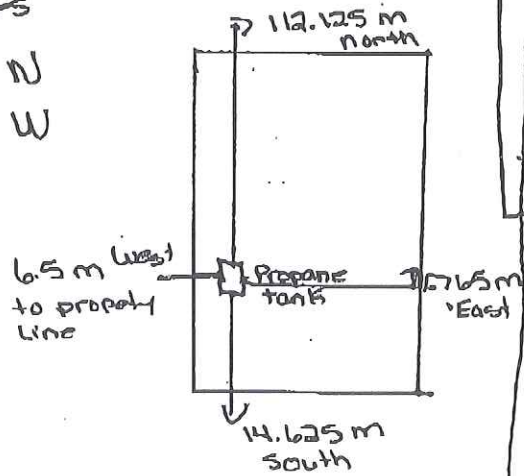 S
N
W
112.125 m
north
6.5 m West
to propety
Line
Propane
tank
65 m
East
14.625 m
South